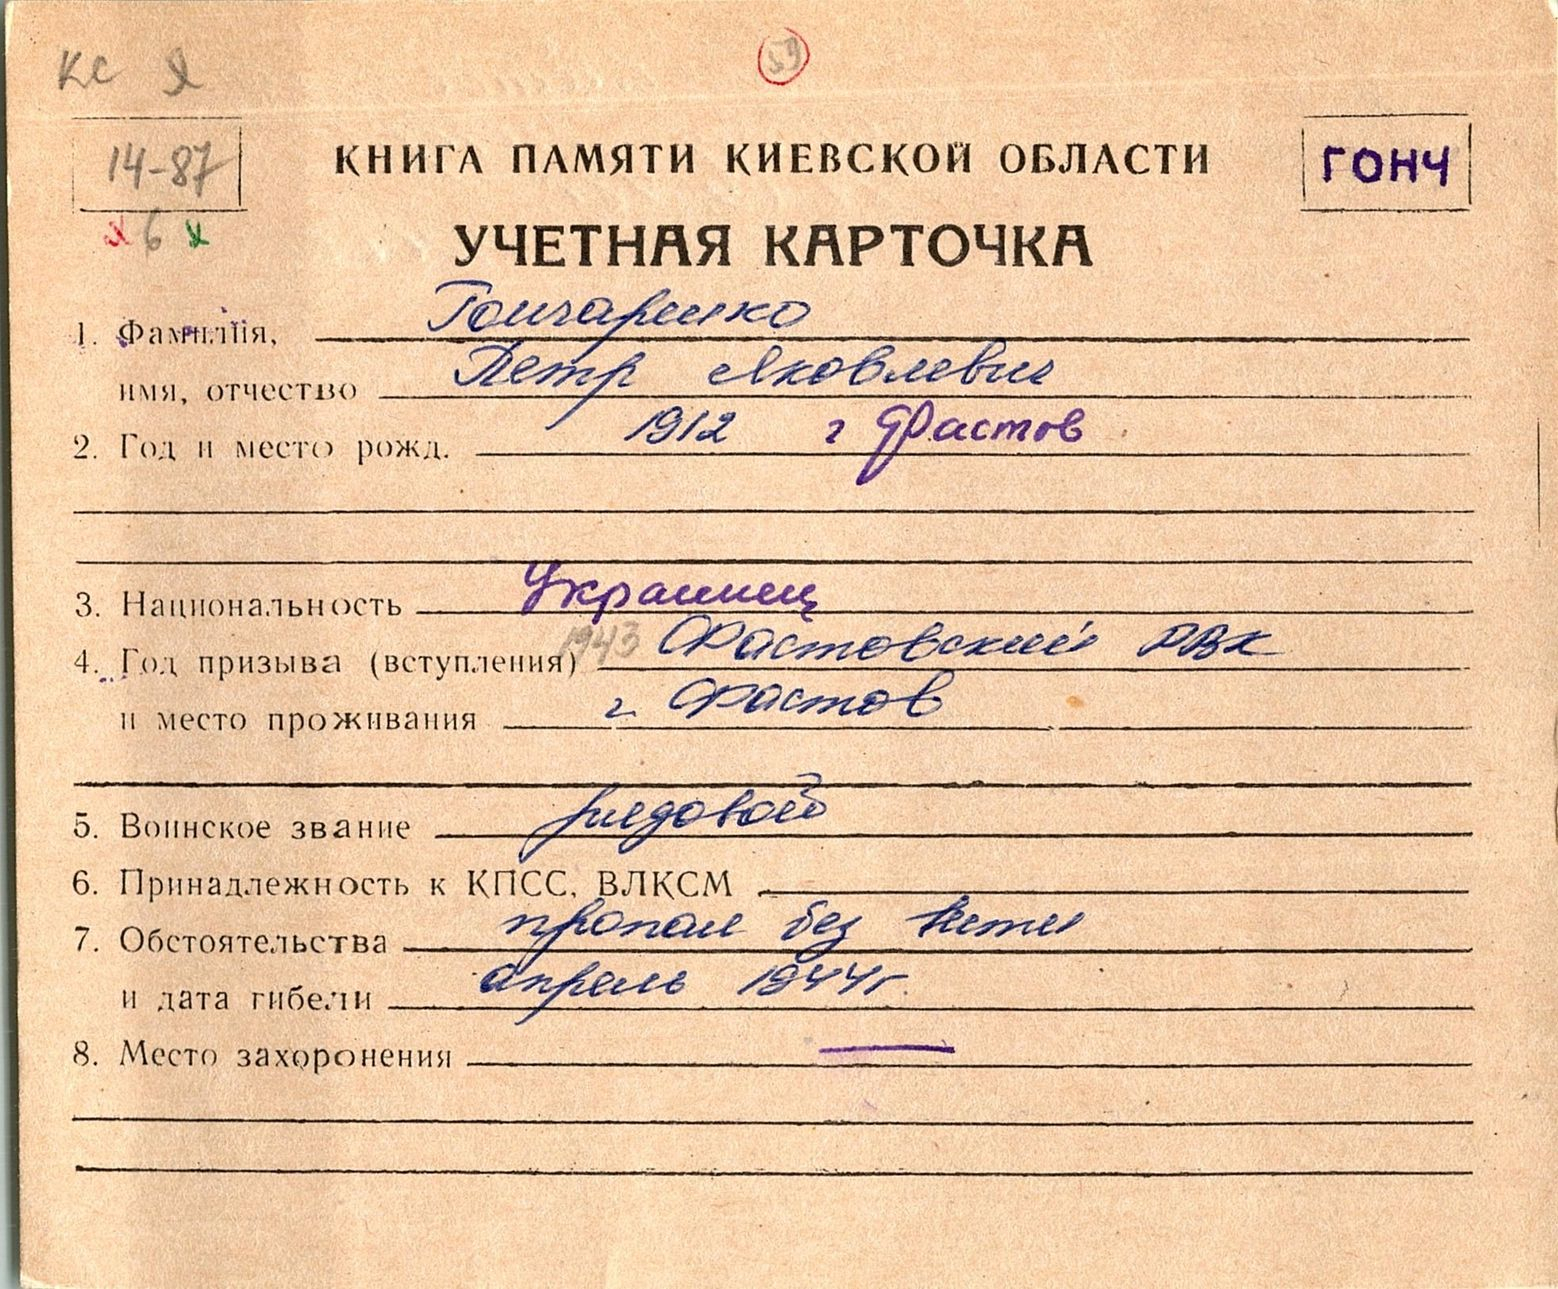 КС Я
59
14-87
КНИГА ПАМЯТИ КИЕВСКОЙ ОБЛАСТИ
ГОНЧ
6
УЧЕТНАЯ КАРТОЧКА
1. Фамилия, Гончаренко
имя, отчество Петр Яковлевич
2. Год и место рожд. 1912 г Фастов
3. Национальность Украинец
4. Год призыва (вступления) 1943 Фастовский РВК
и место проживания г. Фастов
5. Воинское звание рядовой
6. Принадлежность к КПСС, ВЛКСМ
7. Обстоятельства пропал без вести
и дата гибели апрель 1944г.
8. Место захоронения —